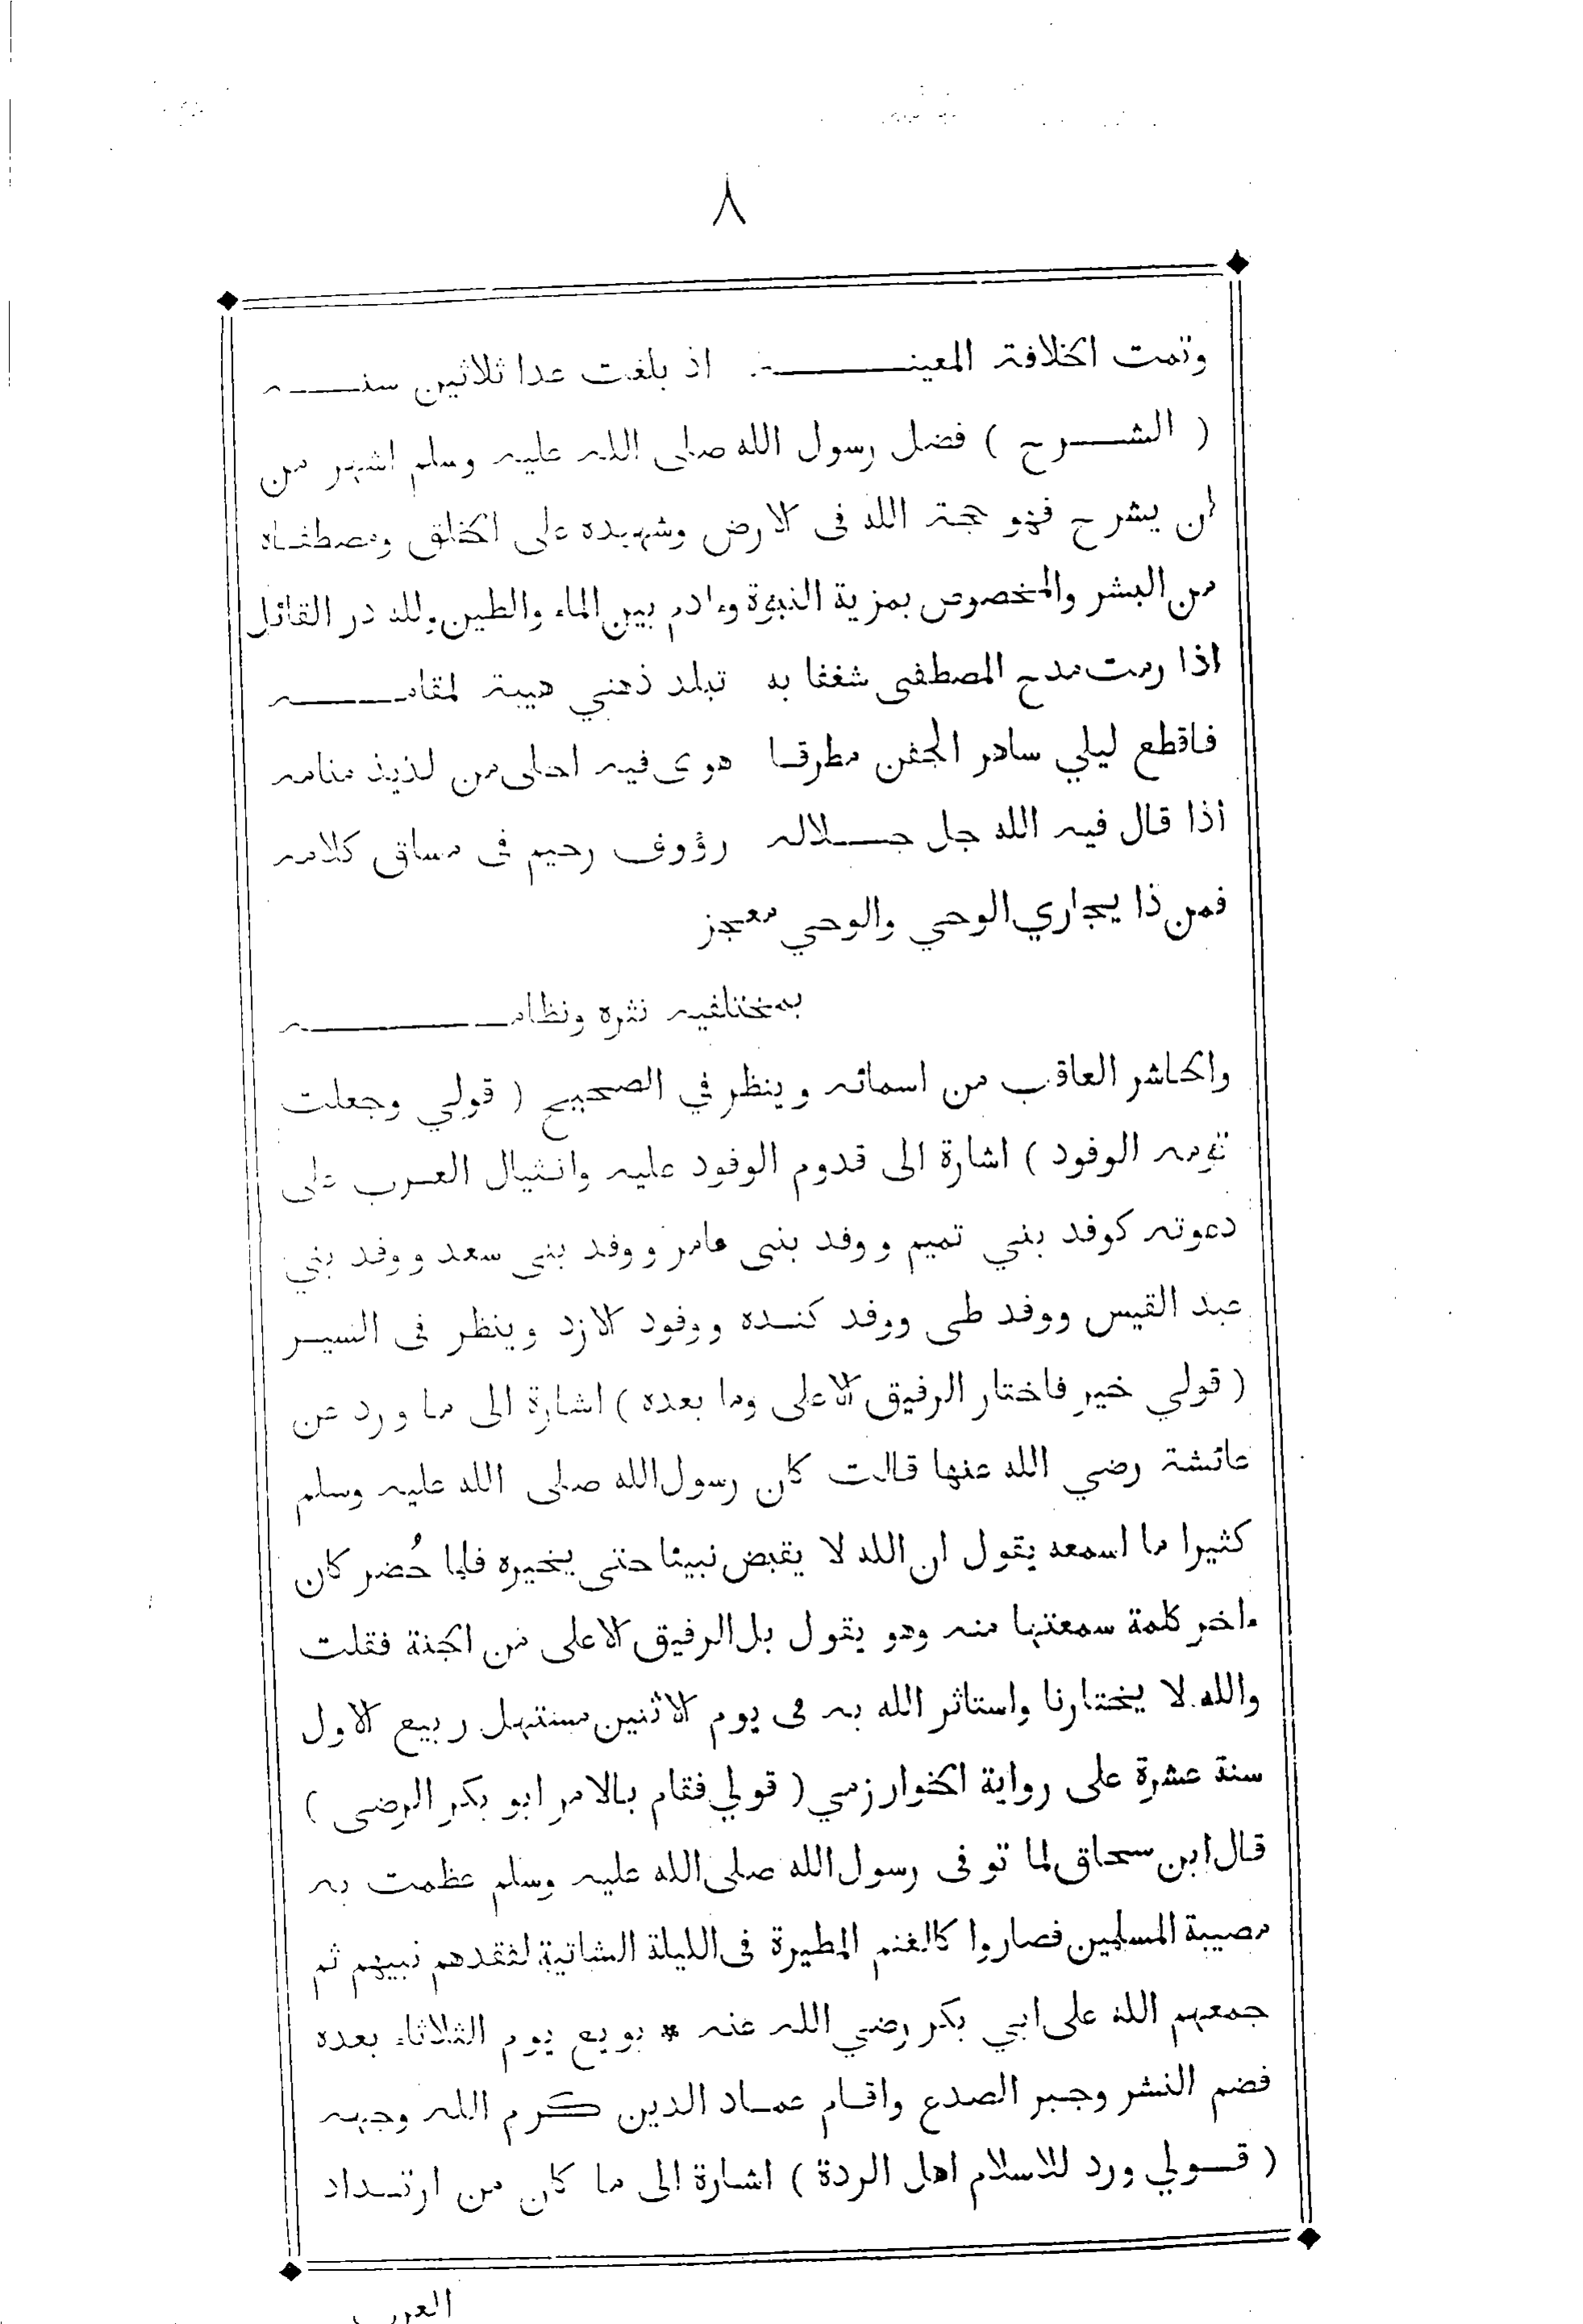 ٨
وتمت الخلافة المعينـــــة اذ بلغت عدا ثلاثين سنـــه
( الشـــرح ) فضل رسول الله صلى الله عليه وسلم اشهر من
ان يشرح فهو حجة الله فى الارض وشهيده على الخلق ومصطفاه
من البشر والمخصوص بمزية النبوة وءادم بين الماء والطين ولله در القائل
اذا رمت مدح المصطفى شغفا به تبلد ذهني هيبة لمقامـــــه
فاقطع ليلي ساهر الجفن مطرقا هوى فيه احلى من لذيذ منامه
اذا قال فيه الله جل جـــلاله رؤوف رحيم فى مساق كلامه
فمن ذا يجاري الوحي والوحي معجز
بمختلفيه نثره ونظامـــــــه
والحاشر العاقب من اسمائه وينظر في الصحيح ( قولي وجعلت
تؤمه الوفود ) اشارة الى قدوم الوفود عليه وانثيال العرب على
دعوته كوفد بني تميم ووفد بنى عامر ووفد بنى سعد ووفد بني
عبد القيس ووفد طى ووفد كنـده ووفود الازد وينظر فى السيـر
( قولي خير فاختار الرفيق الاعلى وما بعده ) اشارة الى ما ورد عن
عائشة رضي الله عنها قالت كان رسول الله صلى الله عليه وسلم
كثيرا ما اسمعه يقول ان الله لا يقبض نبيئا حتى يخيره فلما حُضر كان
ءاخر كلمة سمعتها منه وهو يقول بل الرفيق الاعلى من الجنة فقلت
والله لا يختارنا واستاثر الله به فى يوم الاثنين مستهل ربيع الاول
سنة عشرة على رواية الخوارزمي ( قولي فقام بالامر ابو بكر الرضى )
قال ابن سحاق لما توفى رسول الله صلى الله عليه وسلم عظمت به
مصيبة المسلمين فصاروا كالغنم المطيرة فى الليلة الشاتية لفقدهم نبيهم ثم
جمعهم الله على ابي بكر رضي الله عنه * بويع يوم الثلاثاء بعده
فضم النشر وجبر الصدع واقـام عمـاد الدين كـرم الله وجهه
( قـولي ورد للاسلام اهل الردة ) اشارة الى ما كان من ارتـداد
العرب